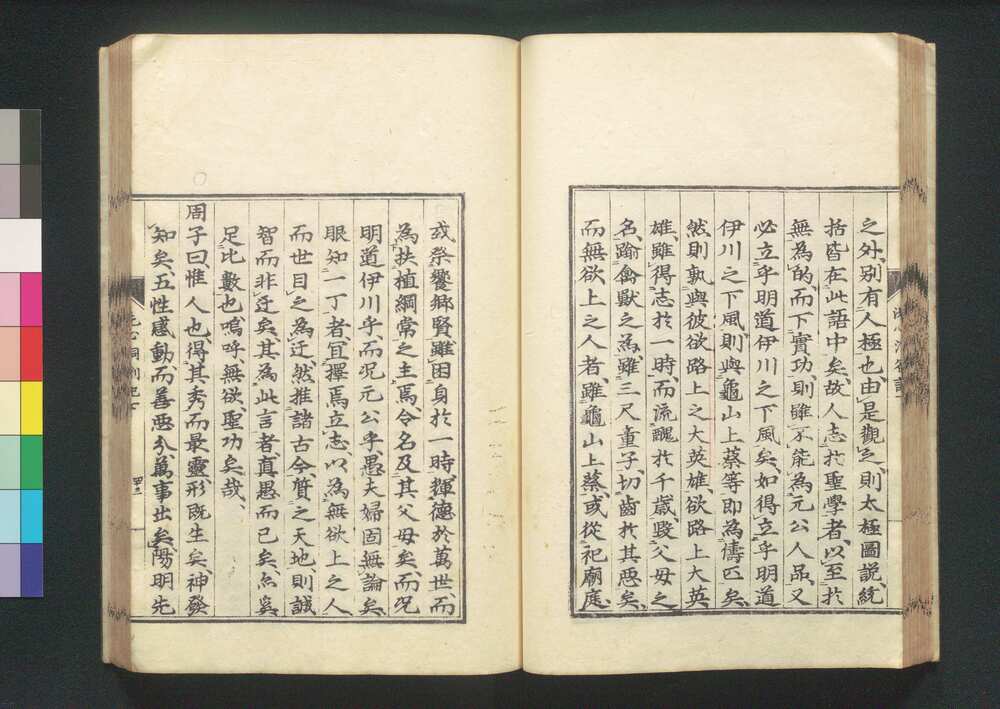 之外、別有人極也、由是觀之、則太極圖說、統
括皆在此語中矣、故人志於聖學者、以至於
無為的、而下實功、則雖不能為元公人品、又
必立乎明道伊川之下風矣、如得立乎明道
伊川之下風、則與龜山上蔡等即為儔匹矣、
然則孰與彼欲路上之大英雄、欲路上大英
雄、雖得志於一時、而流醜於千歲、毀父母之
名、踰禽獸之為、雖三尺童子、切齒於其惡矣、
而無欲上之人者、雖龜山上蔡、或從祀廟庭、
或祭饗鄉賢、雖困身於一時、輝德於萬世、而
為扶植綱常之主焉、令名及其父母矣、而況
明道伊川乎、而況元公乎、愚夫婦固無論矣、
眼知一丁者、宜擇焉立志、以為無欲上之人
而世目之為迂、然推諸古今、質之天地、則誠
智而非迂矣、其為此言者、真愚而已矣、亦奚
足比數也、嗚呼、無欲、聖功矣哉、
周子曰、惟人也、得其秀而最靈、形既生矣、神發
知矣、五性感動、而善惡分、萬事出矣、陽明先
洗心洞劄記上
四二